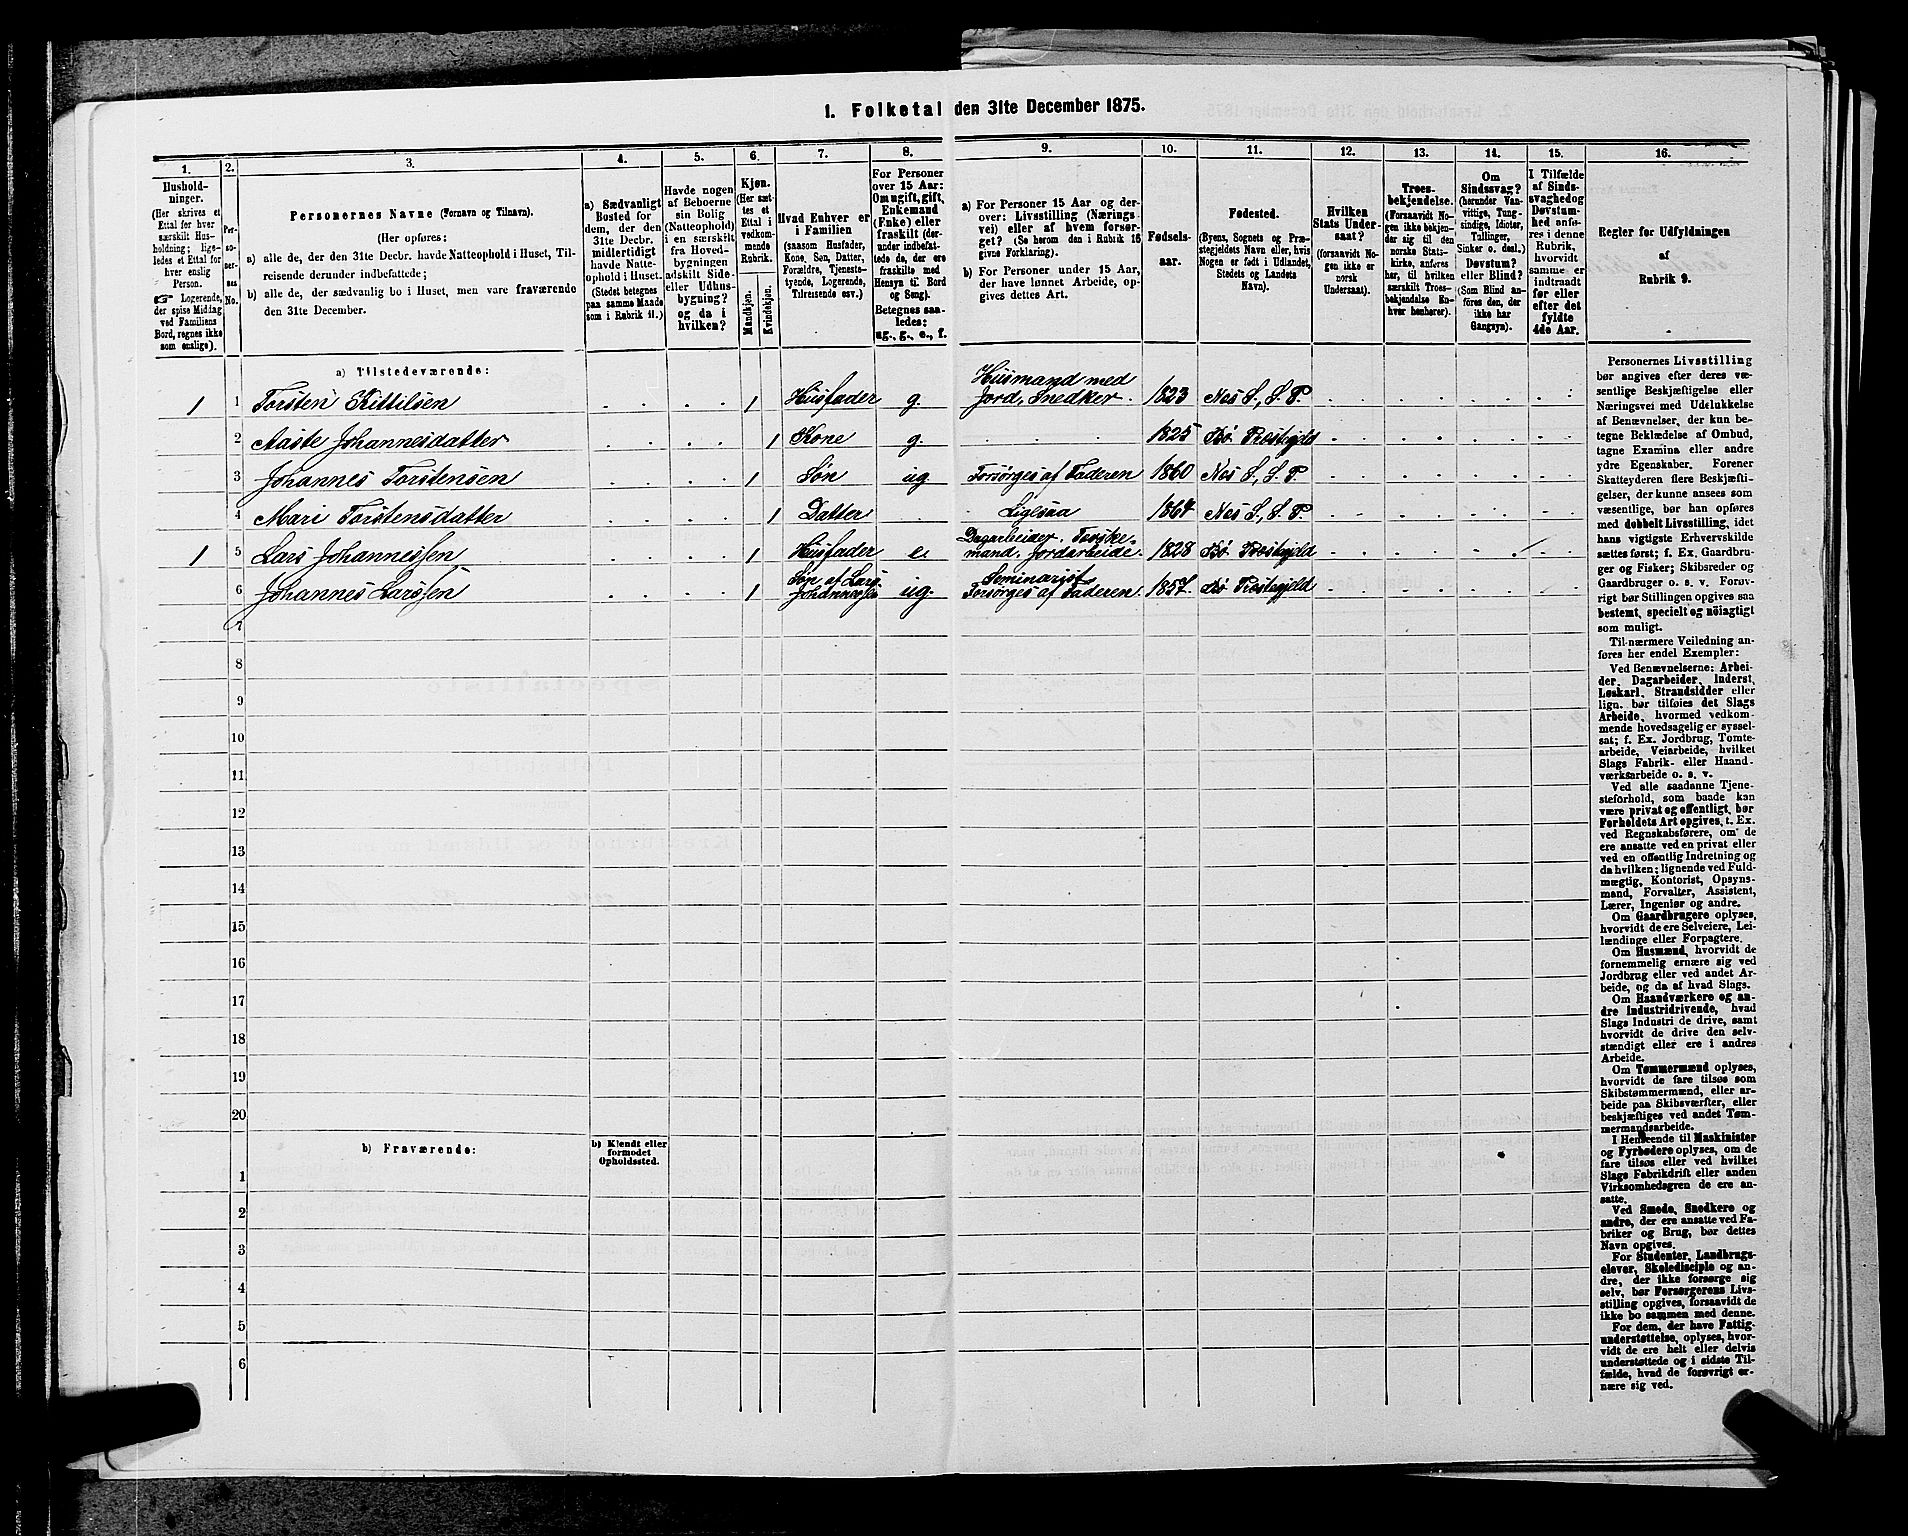 1. Folketal den 31te December 1875.
1. 2. 3. 4. 5. 6. 7. 8. 9. 10. 11. 12. 13. 14. 15. 16.
Hushold-
ninger.
(Her skrives et
Ettal for hver
særskilt Hus-
holdning; lige-
ledes et Ettal for
hver enslig
Person.
☞ Logerende,
der spise Middag
ved Familiens
Bord, regnes ikke
som enslige).
Per-
so-
ner-
nes
No.
Personernes Navne (Fornavn og Tilnavn).
(Her opføres:
a) alle de, der den 31te Decbr. havde Natteophold i Huset, Til-
reisende derunder indbefattede;
b) alle de, der sædvanlig bo i Huset, men vare fraværende
den 31te December.
a) Sædvanligt
Bosted for
dem, der den
31te Decbr.
midlertidigt
havde Natte-
ophold i Huset.
(Stedet betegnes
paa samme Maade
som i Rubrik 11.)
Havde nogen
af Beboerne
sin Bolig
(Natteophold)
i en særskilt
fra Hoved-
bygningen
adskilt Side-
eller Udhus-
bygning?
og da i
hvilken?
Kjøn.
(Her sæt-
tes et
Ettal i
vedkom-
mende
Rubrik.
Mandkjøn.
Kvindekjøn.
Hvad Enhver er
i Familien
(saasom Husfader,
Kone, Søn, Datter,
Forældre, Tjeneste-
tyende, Logerende,
Tilreisende osv.)
For Personer
over 15 Aar:
Om ugift, gift,
Enkemand
(Enke) eller
fraskilt (der-
under indbefat-
tede de, der ere
fraskilte med
Hensyn til Bord
og Seng).
Betegnes saa-
ledes:
ug., g., e., f.
a) For Personer 15 Aar og der-
over: Livsstilling (Nærings-
vei) eller af hvem forsør-
get? (Se herom den i Rubrik 16
givne Forklaring).
b) For Personer under 15 Aar,
der have lønnet Arbeide, op-
gives dettes Art.
Fødsels-
aar.
Fødested.
(Byens, Sognets og Præ-
stegjeldets Navn eller, hvis
Nogen er født i Udlandet,
Stedets og Landets
Navn).
Hvilken
Stats Under-
saat?
(forsaavidt No-
gen ikke er
norsk
Undersaat).
Troes-
bekjendelse.
(Forsaavidt No-
gen ikke bekjen-
der sig til den
norske Stats-
kirke, anføres
her, til hvilken
særskilt Troes-
bekjendelse En-
hver henhører).
Om
Sindssvag?
(herunder Van-
vittige, Tung-
sindige, Idioter,
Tullinger,
Sinker o. desl.)
Døvstum?
eller Blind?
(Som Blind an-
føres den, der
ikke har
Gangsyn).
I Tilfælde
af Sinds-
svaghed og
Døvstum-
hed anfø-
res i denne
Rubrik,
hvorvidt
samme er
indtraadt
før eller
efter det
fyldte
4de Aar.
Regler for Udfyldningen
af
Rubrik 9.
a) Tilstedeværende:
1 1 Torsten Kittilsen 1 Husfader g. Husmand med
Jord, Snedker. 1823 Nes S., S. P.
2 Aaste Johannesdatter 1 Kone g. 1825 Bø Præstegjeld
3 Johannes Torstensen 1 Søn ug Forsørges af Faderen 1860 Nes S., S. P.
4 Mari Torstensdatter 1 Datter Ligesaa 1864 Nes S., S. P.
1 5 Lars Johannessen 1 Husfader e. Dagarbeider,
mand. Jordarbeide. 1828 Bø Præstegjeld
6 Johannes Larssen 1 Søn af Lars
Johannessen ug. Seminarist
Forsørges af Faderen. 1857. Bø Præstegjeld
7
8
9
10
11
12
13
14
15
16
17
18
19
20
b) Fraværende: b) Kjendt eller
formodet
Opholdssted.
1
2
3
4
5
6
Personernes Livsstilling
bør angives efter deres væ-
sentlige Beskjæftigelse eller
Næringsvei med Udelukkelse
af Benævnelser, der kun be-
tegne Beklædelse af Ombud,
tagne Examina eller andre
ydre Egenskaber. Forener
Skatteyderen flere Beskjæfti-
gelser, der kunne ansees som
væsentlige, bør han opføres
med dobbelt Livsstilling, idet
hans vigtigste Erhvervskilde
sættes først; f. Ex. Gaardbru-
ger og Fisker; Skibsreder og
Gaardbruger o. s. v. Forøv-
rigt bør Stillingen opgives saa
bestemt, specielt og nøiagtigt
som muligt.
Til nærmere Veiledning an-
føres her endel Exempler:
Ved Benævnelserne: Arbei-
der, Dagarbeider, Inderst,
Løskarl, Strandsidder eller
lign. bør tilføies det Slags
Arbeide, hvormed vedkom-
mende hovedsagelig er syssel-
sat; f. Ex. Jordbrug, Tomte-
arbeide, Veiarbeide, hvilket
Slags Fabrik- eller Haand-
værksarbeide o. s. v.
Ved alle saadanne Tjene-
steforhold, som baade kan
være privat og offentligt, bør
Forholdets Art opgives, t. Ex.
ved Regnskabsførere, om de
ere ansatte ved en privat eller
ved en offentlig Indretning og
da hvilken; lignende ved Fuld-
mægtig, Kontorist, Opsyns-
mand, Forvalter, Assistent,
Lærer, Ingeniør og andre.
Om Gaardbrugere oplyses,
hvorvidt de ere Selveiere, Lei-
lændinge eller Forpagtere.
Om Husmænd, hvorvidt de
fornemmelig ernære sig ved
Jordbrug eller ved andet Ar-
beide, og da af hvad Slags.
Om Haandværkere og an-
dre Industridrivende, hvad
Slags Industri de drive, samt
hvorvidt de drive den selv-
stændigt eller ere i andres
Arbeide.
Om Tømmermænd oplyses,
hvorvidt de fare tilsøs som
Skibstømmermænd, eller ar-
beide paa Skibsværfter, eller
beskjæftiges ved andet Tøm-
mermandsarbeide.
I Henseende til Maskinister
og Fyrbødere oplyses, om de
fare tilsøs eller ved hvilket
Slags Fabrikdrift eller anden
Virksomhedsgren de ere an-
satte.
Ved Smede, Snedkere og
andre, der ere ansatte ved Fa-
briker og Brug, bør dettes
Navn opgives.
For Studenter, Landbrugs-
elever, Skoledisciple og an-
dre, der ikke forsørge sig
selv, bør Forsørgerens Livs-
stilling opgives, forsaavidt de
ikke bo sammen med denne.
For dem, der have Fattig-
understøttelse, oplyses, hvor-
vidt de ere helt eller delvis
understøttede og i sidste Til-
fælde, hvad de forøvrigt er-
nære sig ved.